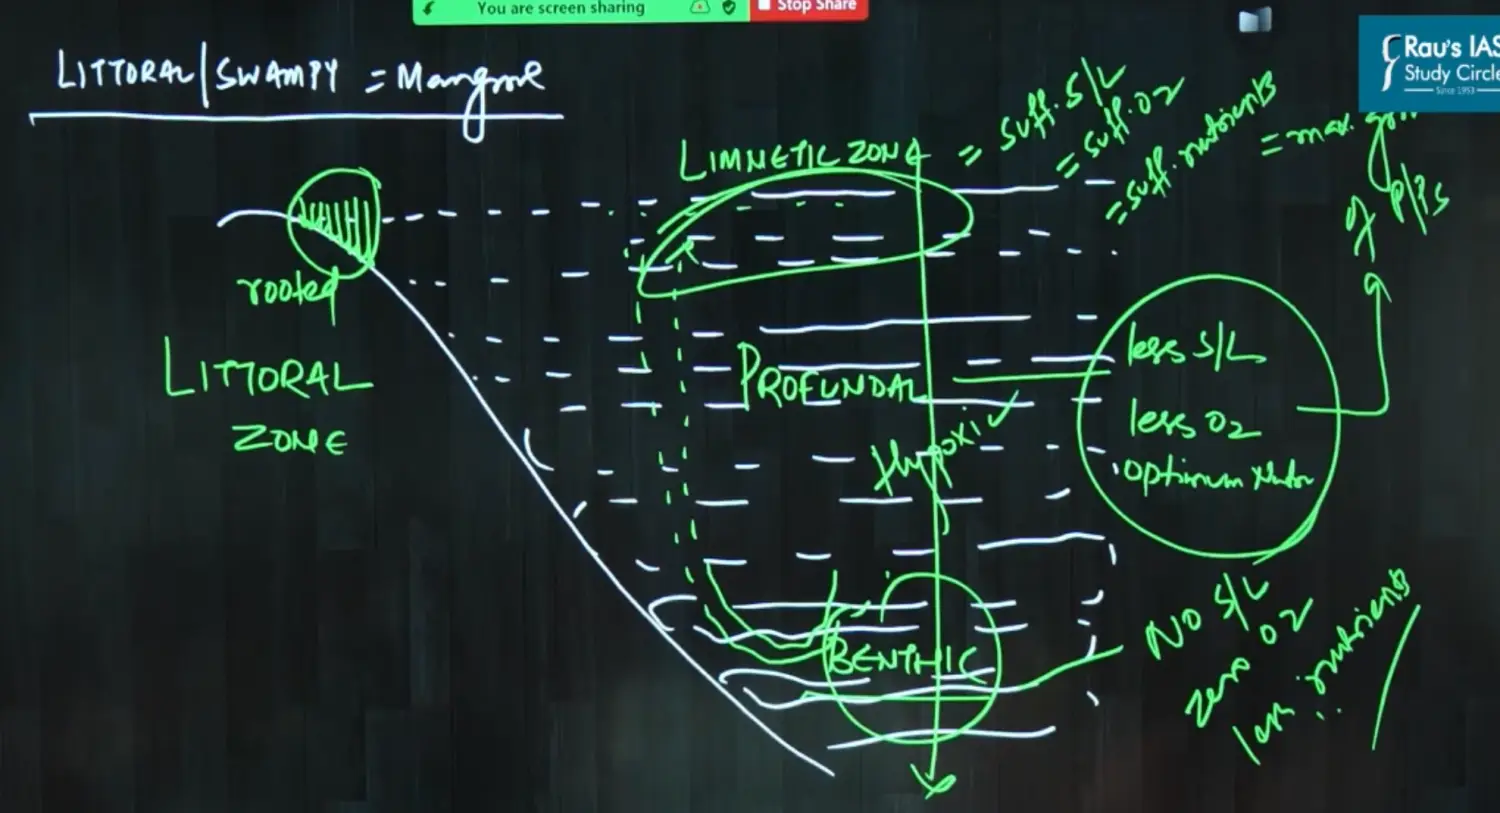 You are screen sharing
Stop Share
Rau's IAS
Study Circle
Since 1953
LITTORAL/SWAMPY = Mangrove
LIMNETIC ZONE
= suff. S/L
= suff. O2
= suff. nutrients
= max.
of P/Ps
rooted
LITTORAL
ZONE
PROFUNDAL
Hypoxic
less S/L
less O2
optimum
BENTHIC
NO S/L
zero O2
less nutrients